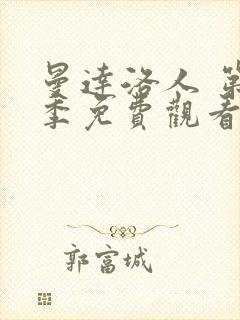 曼達洛人 第
季免費觀看
郭富城